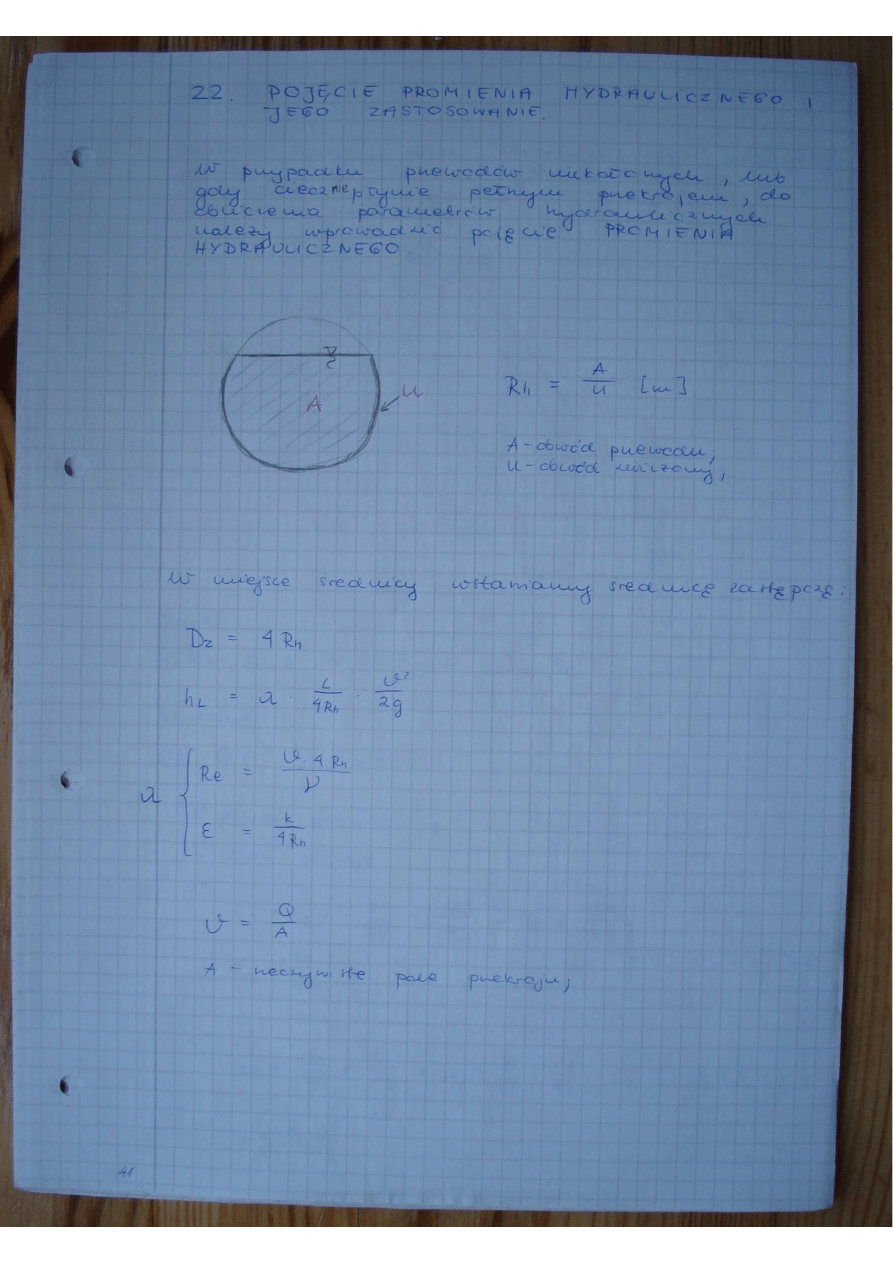 22. POJĘCIE PROMIENIA HYDRAULICZNEGO I
JEGO ZASTOSOWANIE.
W przypadku przewodów niekołowych, lub
gdy ciecz nie płynie pełnym przekrojem, do
obliczenia parametrów hydraulicznych
należy wprowadzić pojęcie PROMIENIA
HYDRAULICZNEGO.
A
U
Rh = A/U [m]
A - obwód przewodu;
U - obwód zwilżony;
W miejsce średnicy wstawiamy średnicę zastępczą:
Dz = 4Rh
hL = λ · L/4Rh · v²/2g
λ { Re = v · 4Rh/ν
ε = k/4Rh
v = Q/A
A - rzeczywiste pole przekroju;
41